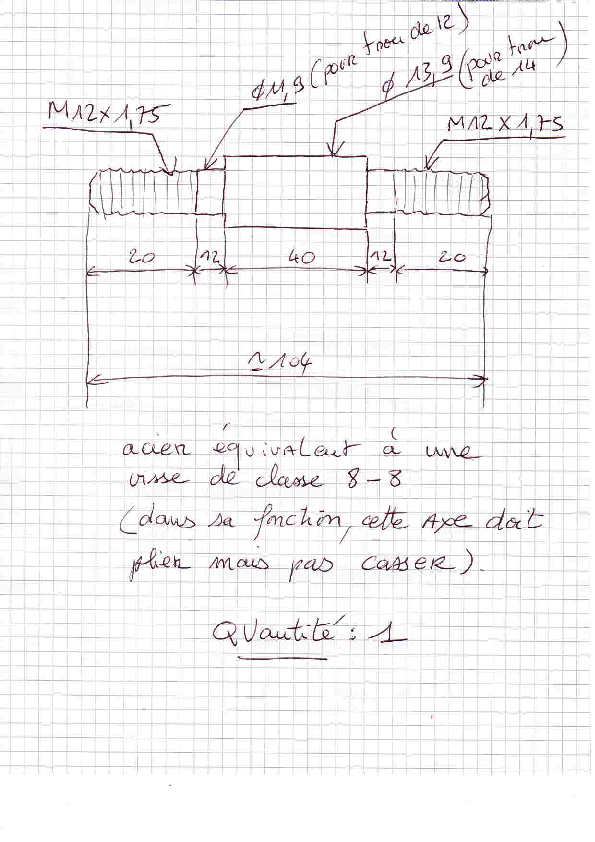 Ø 11,9 (pour trou de 12)
Ø 13,9 (pour trou
de 14
M12 x 1,75
M12 x 1,75
20 12 40 12 20
≃ 104
acier équivalent à une
visse de classe 8-8
(dans sa fonction, cette Axe doit
plier mais pas casser).
Quantité : 1